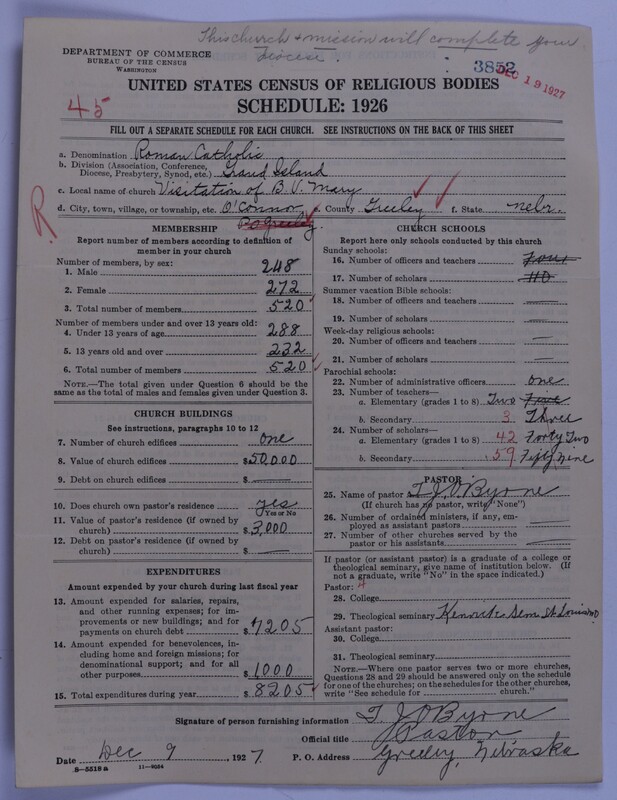 This church & mission will complete your
Diocese.
DEPARTMENT OF COMMERCE
BUREAU OF THE CENSUS
WASHINGTON
3852
DEC 19 1927
UNITED STATES CENSUS OF RELIGIOUS BODIES
SCHEDULE: 1926
45
FILL OUT A SEPARATE SCHEDULE FOR EACH CHURCH. SEE INSTRUCTIONS ON THE BACK OF THIS SHEET
a. Denomination Roman Catholic
b. Division (Association, Conference, Diocese, Presbytery, Synod, etc.) Grand Island
c. Local name of church Visitation of B. V. Mary
d. City, town, village, or township, etc. O'Connor e. County Greeley f. State Nebr.
P.O Greeley
R
MEMBERSHIP
Report number of members according to definition of
member in your church
Number of members, by sex:
1. Male 248
2. Female 272
3. Total number of members 520
Number of members under and over 13 years old:
4. Under 13 years of age 288
5. 13 years old and over 232
6. Total number of members 520
NOTE.—The total given under Question 6 should be the
same as the total of males and females given under Question 3.
CHURCH BUILDINGS
See instructions, paragraphs 10 to 12
7. Number of church edifices one
8. Value of church edifices $50,000
9. Debt on church edifices $ —
10. Does church own pastor's residence? yes
(Yes or No)
11. Value of pastor's residence (if owned by
church) $3,000
12. Debt on pastor's residence (if owned by
church) $ —
EXPENDITURES
Amount expended by your church during last fiscal year
13. Amount expended for salaries, repairs,
and other running expenses; for im-
provements or new buildings; and for
payments on church debt $7205
14. Amount expended for benevolences, in-
cluding home and foreign missions; for
denominational support; and for all
other purposes $1000
15. Total expenditures during year $8205
CHURCH SCHOOLS
Report here only schools conducted by this church
Sunday schools:
16. Number of officers and teachers Four
17. Number of scholars 40
Summer vacation Bible schools:
18. Number of officers and teachers —
19. Number of scholars —
Week-day religious schools:
20. Number of officers and teachers —
21. Number of scholars —
Parochial schools:
22. Number of administrative officers one
23. Number of teachers—
a. Elementary (grades 1 to 8) Two Five
b. Secondary 3 Three
24. Number of scholars—
a. Elementary (grades 1 to 8) 42 Forty Two
b. Secondary 59 Fifty Nine
PASTOR
25. Name of pastor T J O'Byrne
(If church has no pastor, write "None")
26. Number of ordained ministers, if any, em-
ployed as assistant pastors —
27. Number of other churches served by the
pastor or his assistants —
If pastor (or assistant pastor) is a graduate of a college or
theological seminary, give name of institution below. (If
not a graduate, write "No" in the space indicated.)
Pastor:
28. College
29. Theological seminary Kenrick Sem. St Louis MO
Assistant pastor:
30. College
31. Theological seminary
NOTE.—Where one pastor serves two or more churches,
Questions 28 and 29 should be answered only on the schedule
for one of the churches; on the schedules for the other churches,
write "See schedule for church."
Signature of person furnishing information T. J. O'Byrne
Official title Pastor
Date Dec 9, 1927. P. O. Address Greeley, Nebraska
8—5518a 11—9024